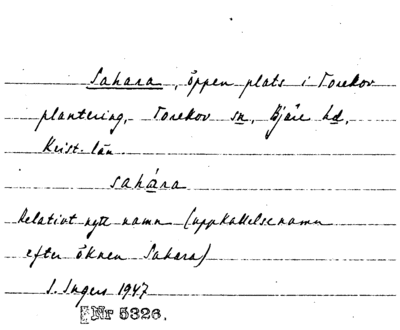 Sahara, öppen plats i Torekov
plantering, Torekov sn, Bjäre hd,
Krist. län
sahára
Relativt nytt namn (uppkallelsenamn
efter öknen Sahara)
I. Ingers 1947
Nr 5326.